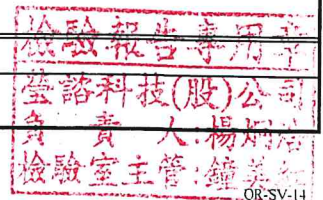 檢驗報告專用章
瑩諮科技(股)公司
負責人:楊炯
檢驗室主管:鐘美
QR-SV-14